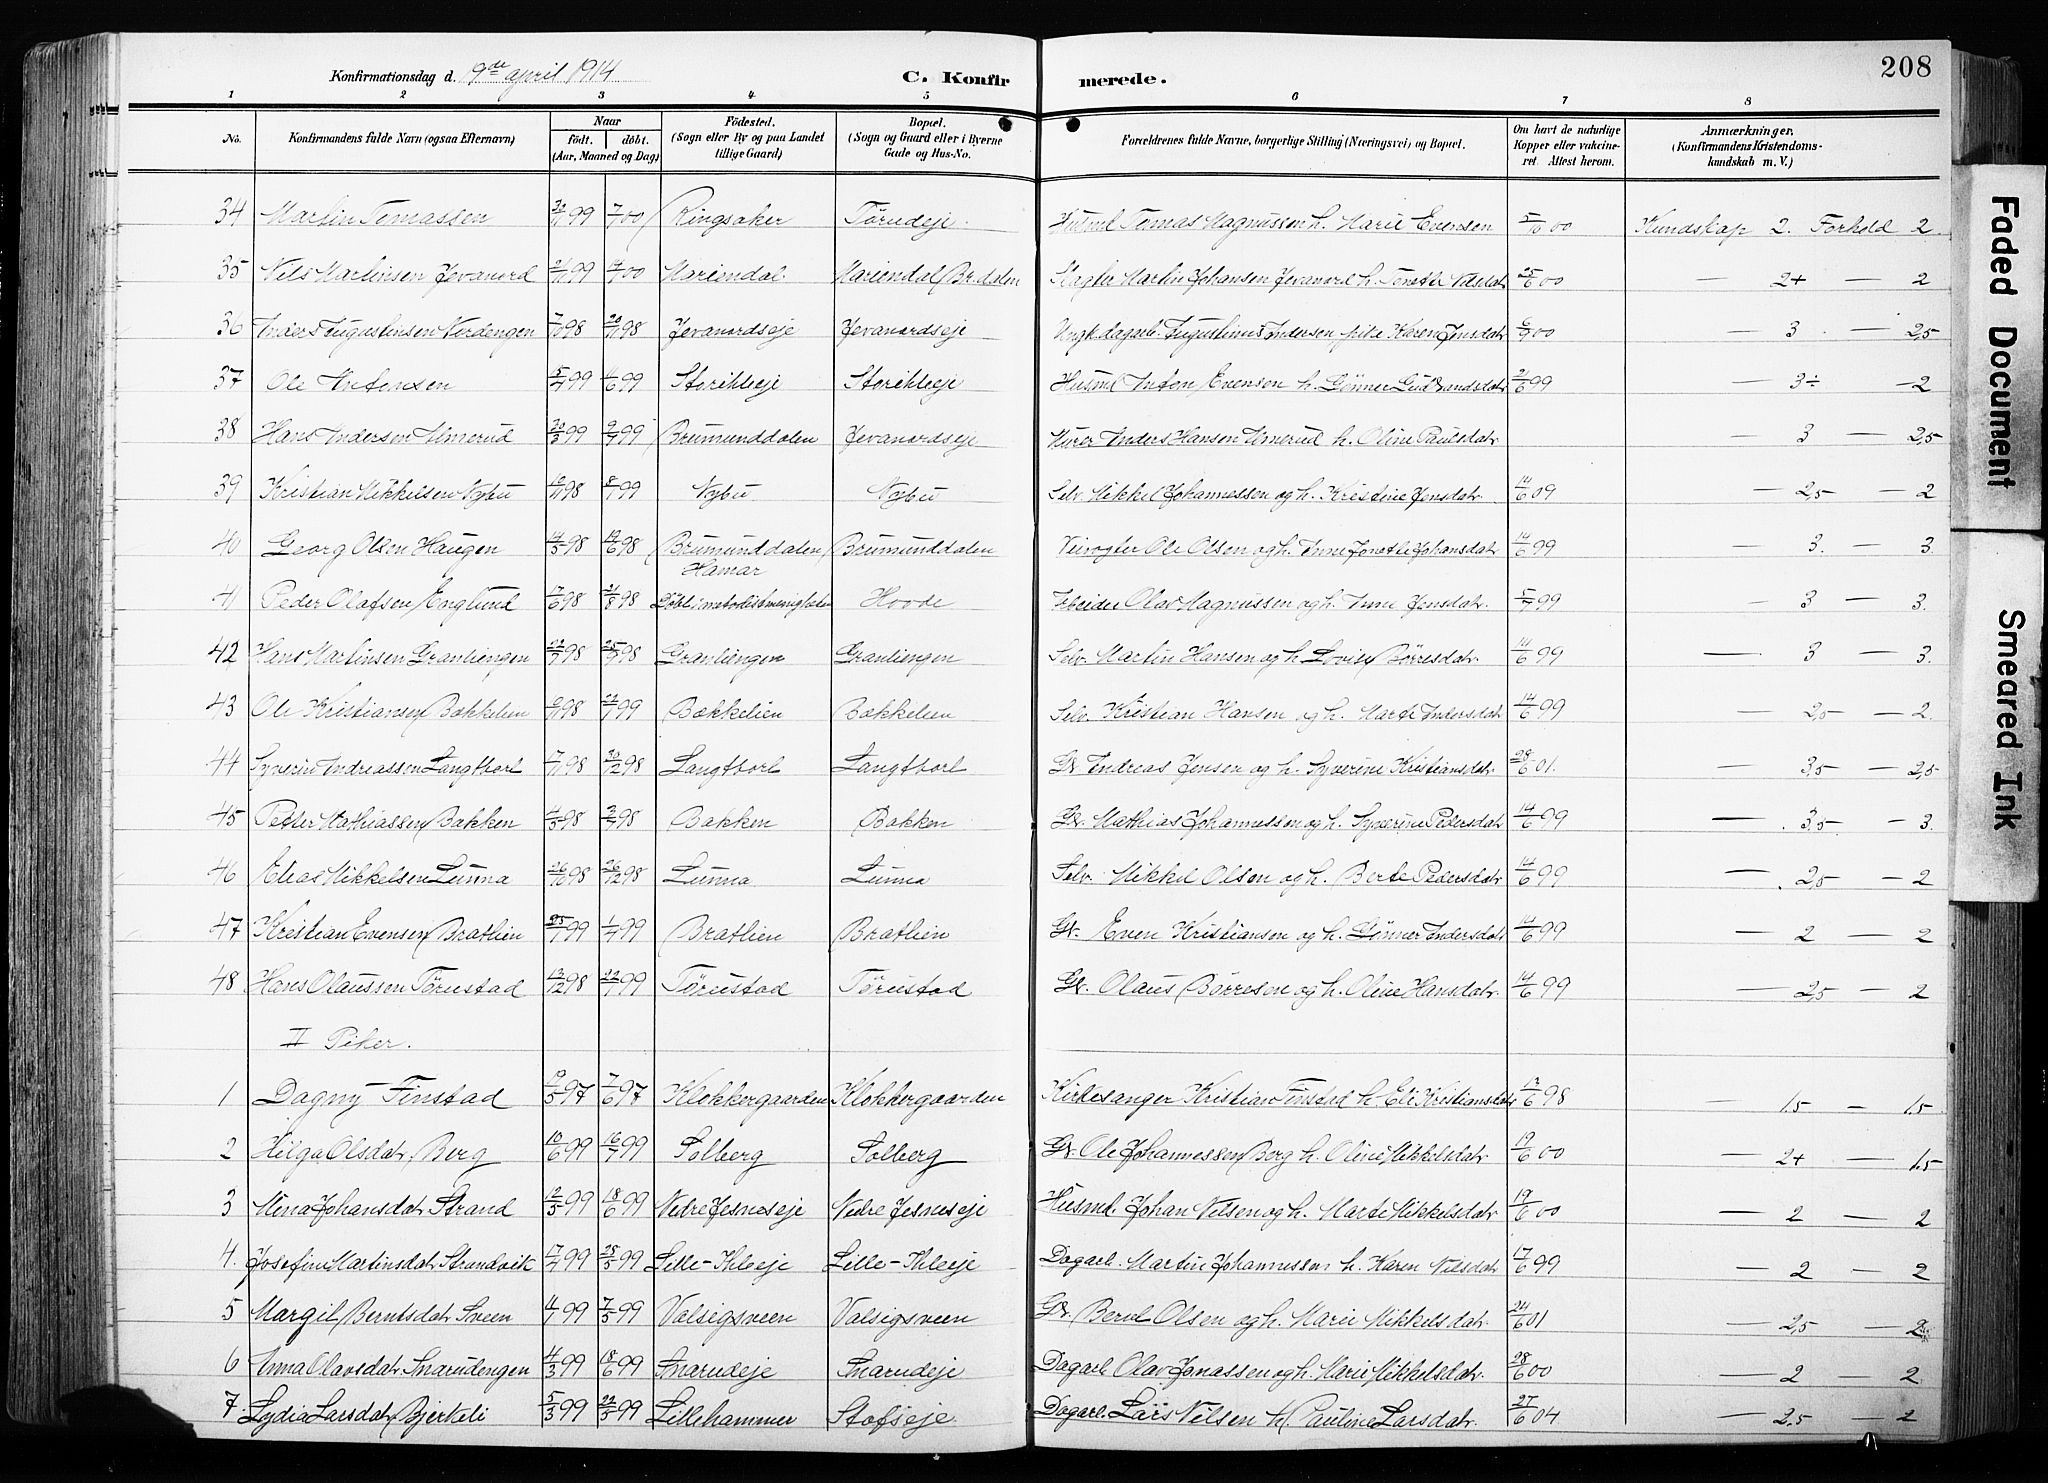 Konfirmationsdag d. 19de april 1914 C. Konfirmerede. 208
1 2 3 4 5 6 7 8
No. Konfirmandens fulde Navn (ogsaa Efternavn) Naar født. døbt. (Aar, Maaned og Dag) Fødested. (Sogn eller By og paa Landet tillige Gaard) Bopæl. (Sogn og Gaard eller i Byerne Gade og Hus-No. Forældrenes fulde Navne, borgerlige Stilling (Næringsvei) og Bopæl. Om havt de naturlige Kopper eller vakcineret. Attest herom. Anmærkninger. (Konfirmandens Kristendomskundskab m. V.)
34 Martin Tomassen 30/11 99 7/1 00 Ringsaker Tørudeje. Husmd Tomas Magnussen h. Marie Evensen 5/10 00 Kundskap 2. Forhold 2.
35 Nils Martinsen Jevanord 99 00 Mariendal. Mariendal Br.dalen Slagter Martin Johansen Jevanord h. Tonette Nilsdatr 25/6 00 — 2+ — 2
36 Anders Augustinsen Verdengen 7/10 98 20/11 98 Jevanordseje Jevanordseje Ungk. dagarb. Augustinus Andersen pike Karen Jensdatr 6/9 00 — 3 — 2,5
37 Ole Antonsen 15/4 99 99 Storihleeje Storihleeje Husmd Anton Evensen h. Gønner Gudbrandsdatr 21/6 99 — 3÷ — 2
38 Hans Andersen Almerud 30/3 99 9/7 99 Brumunddalen Jevanordseje Murer Anders Hansen Almerud h. Oline Paulsdatr — 3 — 2,5
39 Kristian Mikkelsen Nybu 98 99 Nybu Nybu Selv. Mikkel Johannessen og h. Kristine Jensdatr. 14/6 09 — 2,5 — 2
40 Georg Olsen Haugen 14/5 98 19/6 98 Brumunddalen Brumunddalen Veivogter Ole Olsen og h. Anne Jonette Johansdatr 14/6 99 — 3. — 3.
41 Peder Olafsen Englund 17/6 98 21/8 98 Hamar Døbt i metodistmenigheten Hovde Arbeider Olav Magnussen og h. Anne Jensdatr. 5/7 99 — 3 — 3.
42 Hans Martinsen Granliengen 22/7 98 25/9 98 Granliengen Granliengen Selv. Martin Hansen og h. Lovise Børresdatr. 14/6 99 — 3 — 3.
43 Ole Kristiansen Bakkelien 98 99 Bakkelien Bakkelien Selv. Kristian Hansen og h. Marte Andersdatr 14/6 99 — 2,5 — 2.
44 Syverin Andreassen Langtborl 17/11 98 30/12 98 Langtborl Langtborl Gr. Andreas Jensen og h. Syverine Kristiansdatr. 28/6 01. — 3,5 — 2,5
45 Petter Mathiassen Bakken 4/5 98 3/7 98 Bakken Bakken Gr. Mathias Johannessen og h. Syverine Pedersdatr 14/6 99 — 3,5 — 3.
46 Elias Mikkelsen Lunna 26/10 98 26/12 98 Lunna Lunna Selv. Mikkel Olsen og h. Berte Pedersdatr 14/6 99 — 2,5 — 2
47 Kristian Evensen Bratlien 25/1 99 99 Bratlien Bratlien Gr. Even Kristiansen og h. Gønner Andersdatr 14/6 99 — 2 — 2
48 Hans Olaussen Tørustad 13/12 98 22/1 99 Tørustad Tørustad Gr. Olaus Børresen og h. Oline Hansdatr. 14/6 99 — 2,5 — 2
II Piker.
1 Dagny Finstad 19/5 97 7/6 97 Klokkergaarden Klokkergaarden Kirkesanger Kristian Finstad h. Eli Kristiansdatr 17/6 98 — 1.5 — 1.5.
2 Helga Olsdatr Berg 10/6 99 16/7 99 Solberg Solberg Gr. Ole Johannessen Berg h. Oline Mikkelsdatr. 19/6 00 — 2+ — 1.5
3 Mina Johansdatr Strand 12/5 99 18/6 99 Nedre Jesneseje Nedre Jesneseje Husmd. Johan Nilsen og h. Marte Mikkelsdatr. 19/6 00 — 2 — 2
4. Josefine Martinsdatr Strandvik 17/4 99 28/5 99 Lille-Ihleeje Lille-Ihleeje Dagarb. Martin Johannessen h. Karen Nilsdatr 17/6 99 — 2 — 2
5 Margit Berntsdatr Sveen 99 7/5 99 Valsigsveen Valsigsveen Gr. Bernt Olsen og h. Marie Mikkelsdatr. 24/6 01 — 2,5 — 2
6 Anna Olavsdatr Snarudengen 4/3 99 18/6 99 Snarudeje Snarudeje Dagarb Olav Jonassen og h. Marie Mikkelsdatr. 28/6 00 — 2 — 2
7. Lydia Larsdatr Bjerkeli 5/3 99 22/5 99 Lillehammer Stofseje Dagarb. Lars Nilsen h. Pauline Larsdatr. 27/6 04 — 2.5 — 2
Faded Document
Smeared Ink